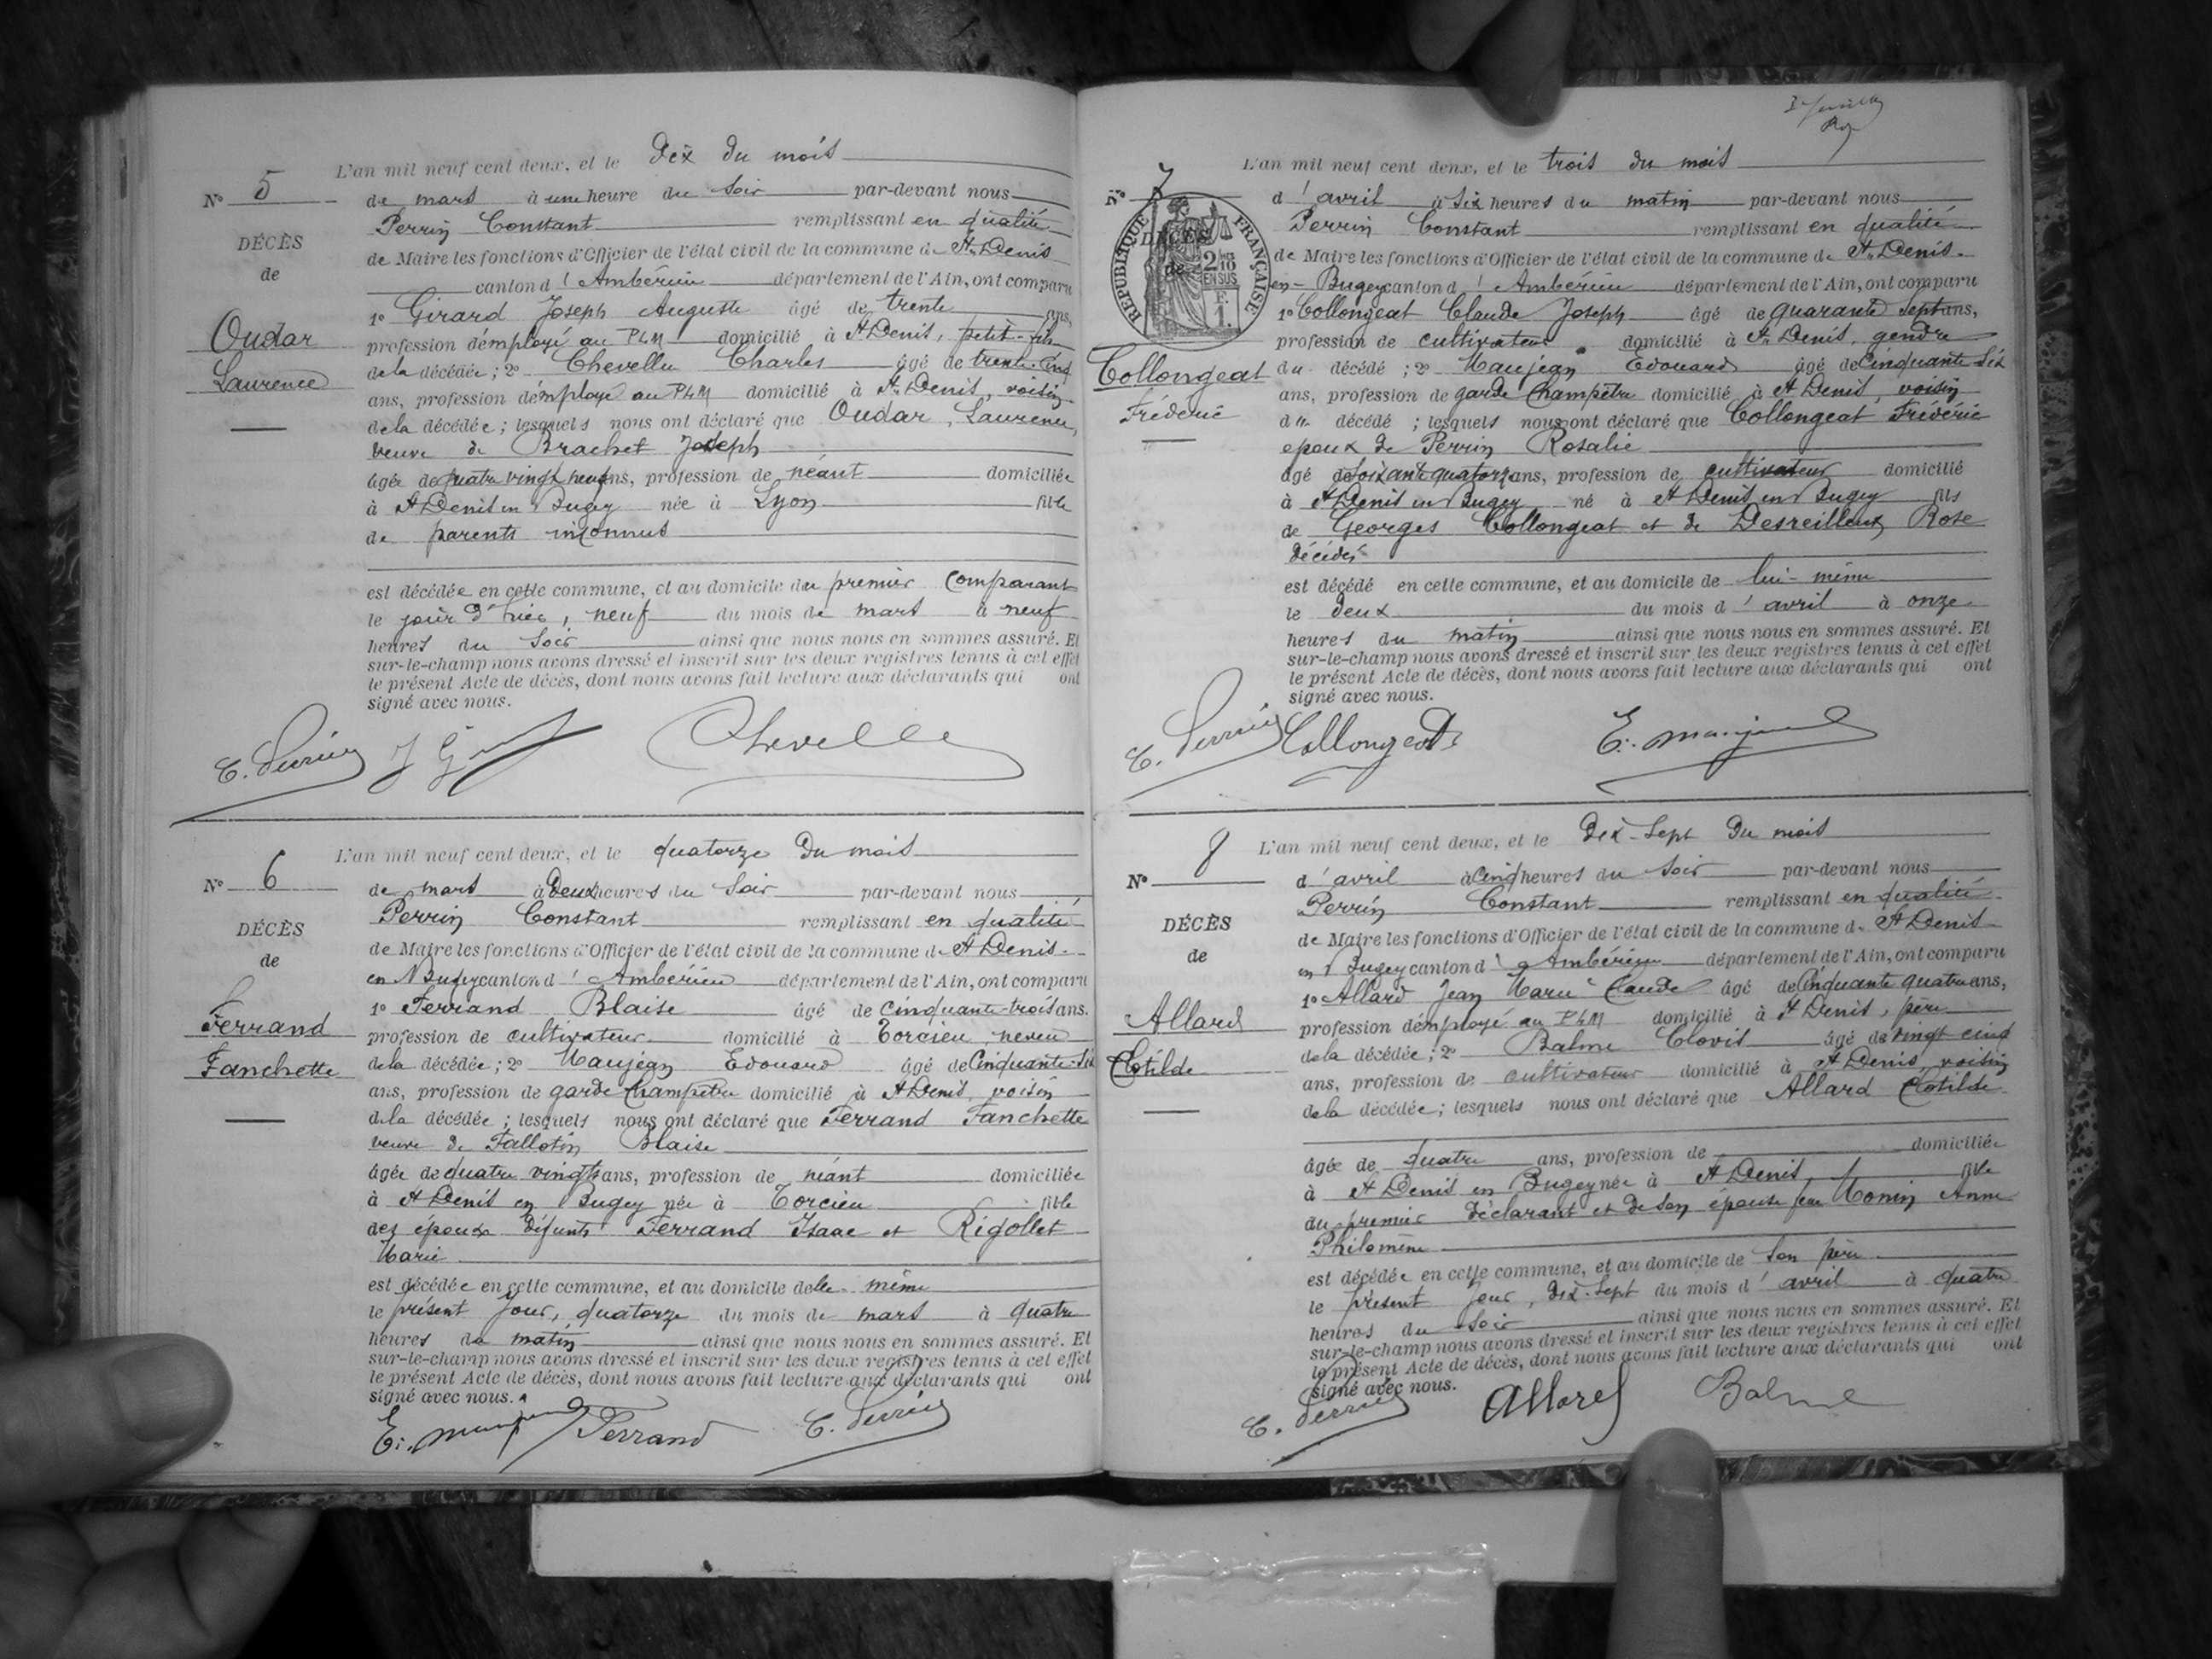 L'an mil neuf cent deux, et le dix du mois
N° 5
de mars à une heure du soir par-devant nous
Perrin Constant remplissant en qualité
DÉCÈS
de Maire les fonctions d'Officier de l'état civil de la commune de St Denis
de
canton d'Ambérieu département de l'Ain, ont comparu
1° Girard Joseph Auguste âgé de trente ans,
Oudar
profession d'employé au PLM domicilié à St Denis, petit-fils
Laurence
de la décédée; 2° Chevelle Charles âgé de trente-cinq
ans, profession d'employé au PLM domicilié à St Denis, voisin
de la décédée; lesquels nous ont déclaré que Oudar, Laurence,
veuve de Brachet Joseph
âgée de quatre vingt neuf ans, profession de néant domiciliée
à St Denis en Bugey née à Lyon fille
de parents inconnus
est décédée en cette commune, et au domicile du premier comparant
le jour d'hier, neuf du mois de mars à neuf
heures du soir ainsi que nous nous en sommes assuré. Et
sur-le-champ nous avons dressé et inscrit sur les deux registres tenus à cet effet
le présent Acte de décès, dont nous avons fait lecture aux déclarants qui ont
signé avec nous.
C. Perrin J Chevelle
L'an mil neuf cent deux, et le quatorze du mois
N° 6
de mars à deux heures du soir par-devant nous
Perrin Constant remplissant en qualité
DÉCÈS
de Maire les fonctions d'Officier de l'état civil de la commune de St Denis-
de
en Bugey canton d'Ambérieu département de l'Ain, ont comparu
1° Ferrand Blaise âgé de cinquante-trois ans.
Ferrand
profession de cultivateur domicilié à Torcieu, neveu
Fanchette
de la décédée; 2° Maujean Edouard âgé de cinquante-six
ans, profession de garde champêtre domicilié à St Denis, voisin
de la décédée; lesquels nous ont déclaré que Ferrand Fanchette
veuve de Fallotin Blaise
âgée de quatre vingts ans, profession de néant domiciliée
à St Denis en Bugey née à Torcieu fille
des époux défunts Ferrand Isaac et Rigollet
Marie
est décédée en cette commune, et au domicile d'elle-même
le présent jour, quatorze du mois de mars à quatre
heures du matin ainsi que nous nous en sommes assuré. Et
sur-le-champ nous avons dressé et inscrit sur les deux registres tenus à cet effet
le présent Acte de décès, dont nous avons fait lecture aux déclarants qui ont
signé avec nous.
E. Maujean Ferrand C. Perrin
L'an mil neuf cent deux, et le trois du mois
N° 7
d'avril à six heures du matin par-devant nous
Perrin Constant remplissant en qualité
RÉPUBLIQUE FRANÇAISE
DÉCÈS
de
2/10 EN SUS
F. 1.
de Maire les fonctions d'Officier de l'état civil de la commune de St Denis-
en-Bugey canton d'Ambérieu département de l'Ain, ont comparu
1° Collongeat Claude Joseph âgé de quarante sept ans,
profession de cultivateur domicilié à St Denis, gendre
Collongeat
du décédé; 2° Maujean Edouard âgé de cinquante six
ans, profession de garde champêtre domicilié à St Denis, voisin
Frédéric
du décédé; lesquels nous ont déclaré que Collongeat Frédéric
epoux de Perrin Rosalie
âgé de soixante quatorze ans, profession de cultivateur domicilié
à St Denis en Bugey né à St Denis en Bugey fils
de Georges Collongeat et de Desreilleux Rose
décédés
est décédé en cette commune, et au domicile de lui-même
le deux du mois d'avril à onze
heures du matin ainsi que nous nous en sommes assuré. Et
sur-le-champ nous avons dressé et inscrit sur les deux registres tenus à cet effet
le présent Acte de décès, dont nous avons fait lecture aux déclarants qui ont
signé avec nous.
C. Perrin Collongeat E. Maujean
L'an mil neuf cent deux, et le dix-sept du mois
N° 8
d'avril à cinq heures du soir par-devant nous
Perrin Constant remplissant en qualité
DÉCÈS
de Maire les fonctions d'Officier de l'état civil de la commune de St Denis
de
en Bugey canton d'Ambérieu département de l'Ain, ont comparu
1° Allard Jean Marie Claude âgé de cinquante quatre ans,
Allard
profession d'employé au PLM domicilié à St Denis, père
Clotilde
de la décédée; 2° Balme Clovis âgé de vingt cinq
ans, profession de cultivateur domicilié à St Denis, voisin
de la décédée; lesquels nous ont déclaré que Allard Clotilde
âgée de quatre ans, profession de domiciliée
à St Denis en Bugey née à St Denis fille
du premier déclarant et de son épouse feu Monin Anne
Philomène
est décédée en cette commune, et au domicile de son père
le présent jour, dix-sept du mois d'avril à quatre
heures du soir ainsi que nous nous en sommes assuré. Et
sur-le-champ nous avons dressé et inscrit sur les deux registres tenus à cet effet
le présent Acte de décès, dont nous avons fait lecture aux déclarants qui ont
signé avec nous.
C. Perrin Allard Balme